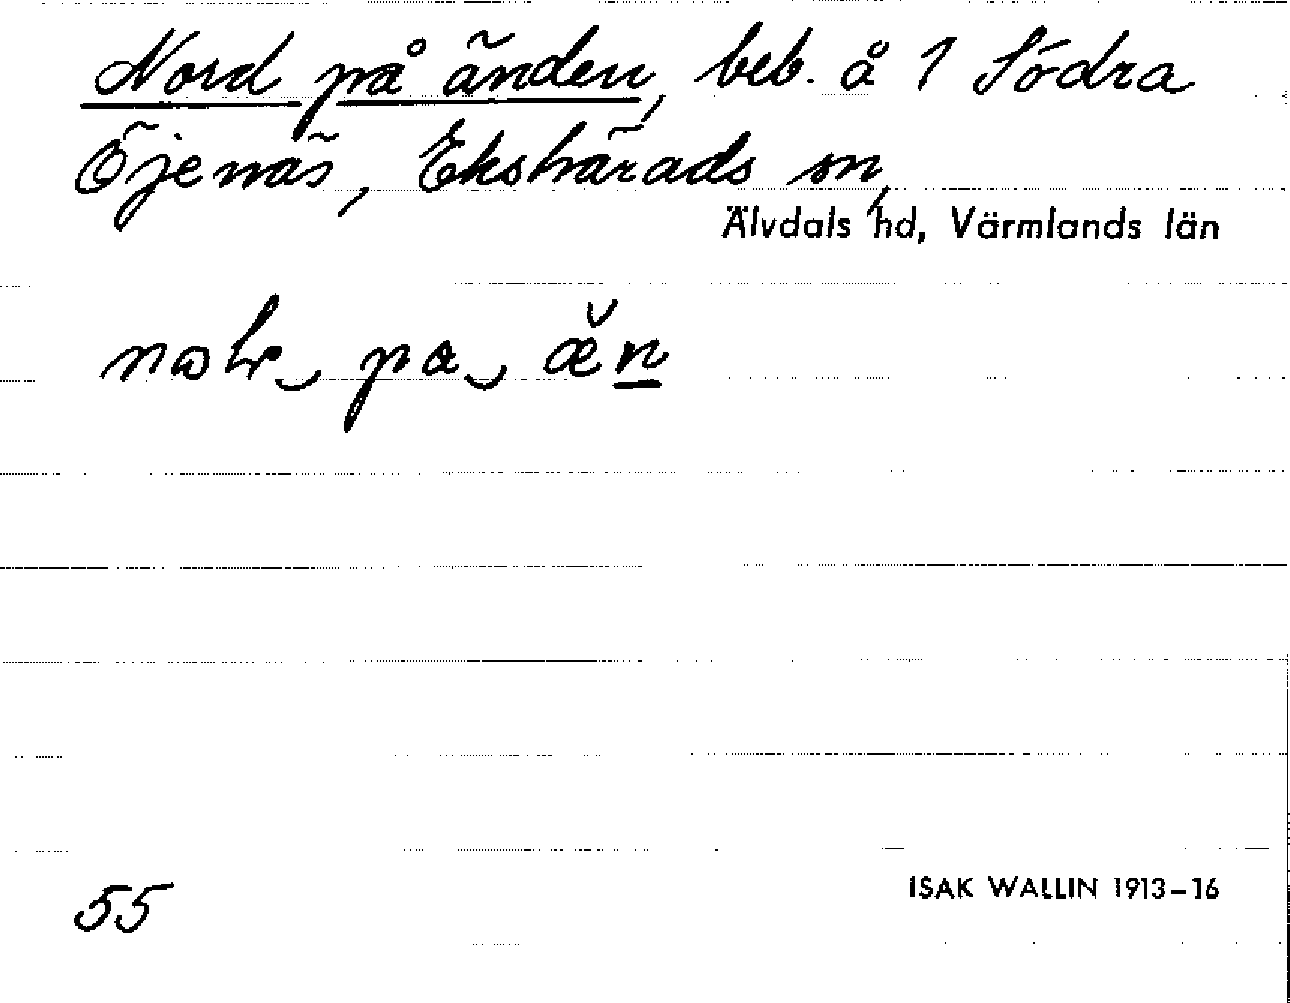 Nord på änden, beb. å 1 Södra
Öjenäs, Ekshärads sn,
Älvdals hd, Värmlands län
55
ISAK WALLIN 1913–16